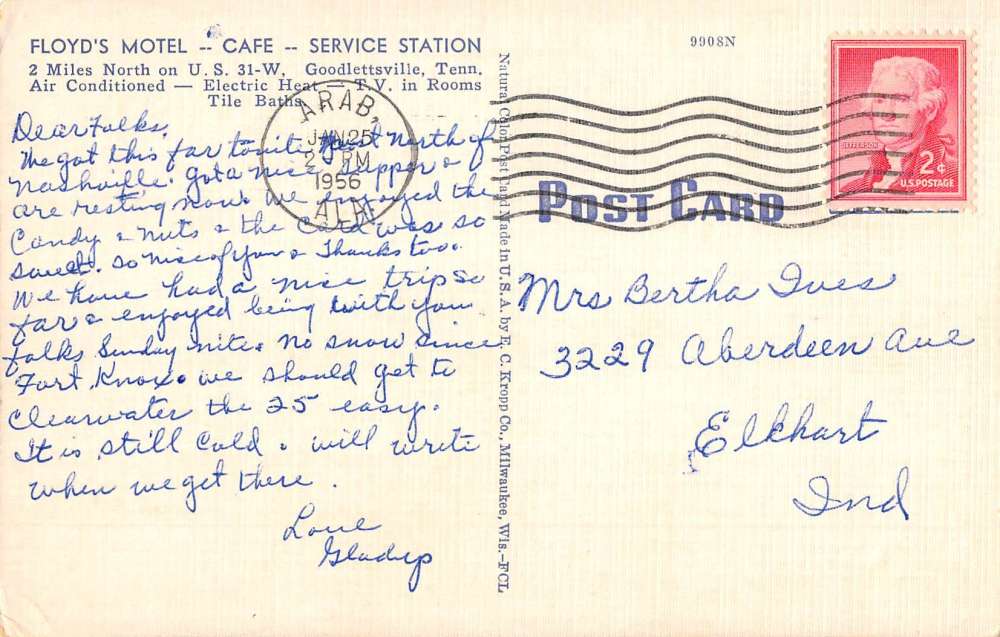 FLOYD'S MOTEL -- CAFE -- SERVICE STATION
2 Miles North on U. S. 31-W, Goodlettsville, Tenn.
Air Conditioned — Electric Heat — T.V. in Rooms
Tile Baths
Dear Folks,
We got this far tonite just north of
Nashville. got a nice supper &
are resting now. we enjoyed the
Candy & nuts & the Card was so
sweet. so nice of you & Thanks too.
We have had a nice trip so
far & enjoyed being with you
folks Sunday nite. no snow since
Fort Knox. we should get to
Clearwater the 25 easy.
It is still Cold. will write
when we get there.
Love
Gladys
Natural Color Post Card Made in U. S. A. by E. C. Kropp Co., Milwaukee, Wis.—FCL
9908N
ARAB,
JAN 25
2 - PM
1956
ALA
JEFFERSON
2¢
U.S. POSTAGE
POST CARD
Mrs Bertha Ives
3229 Aberdeen Ave
Elkhart
Ind